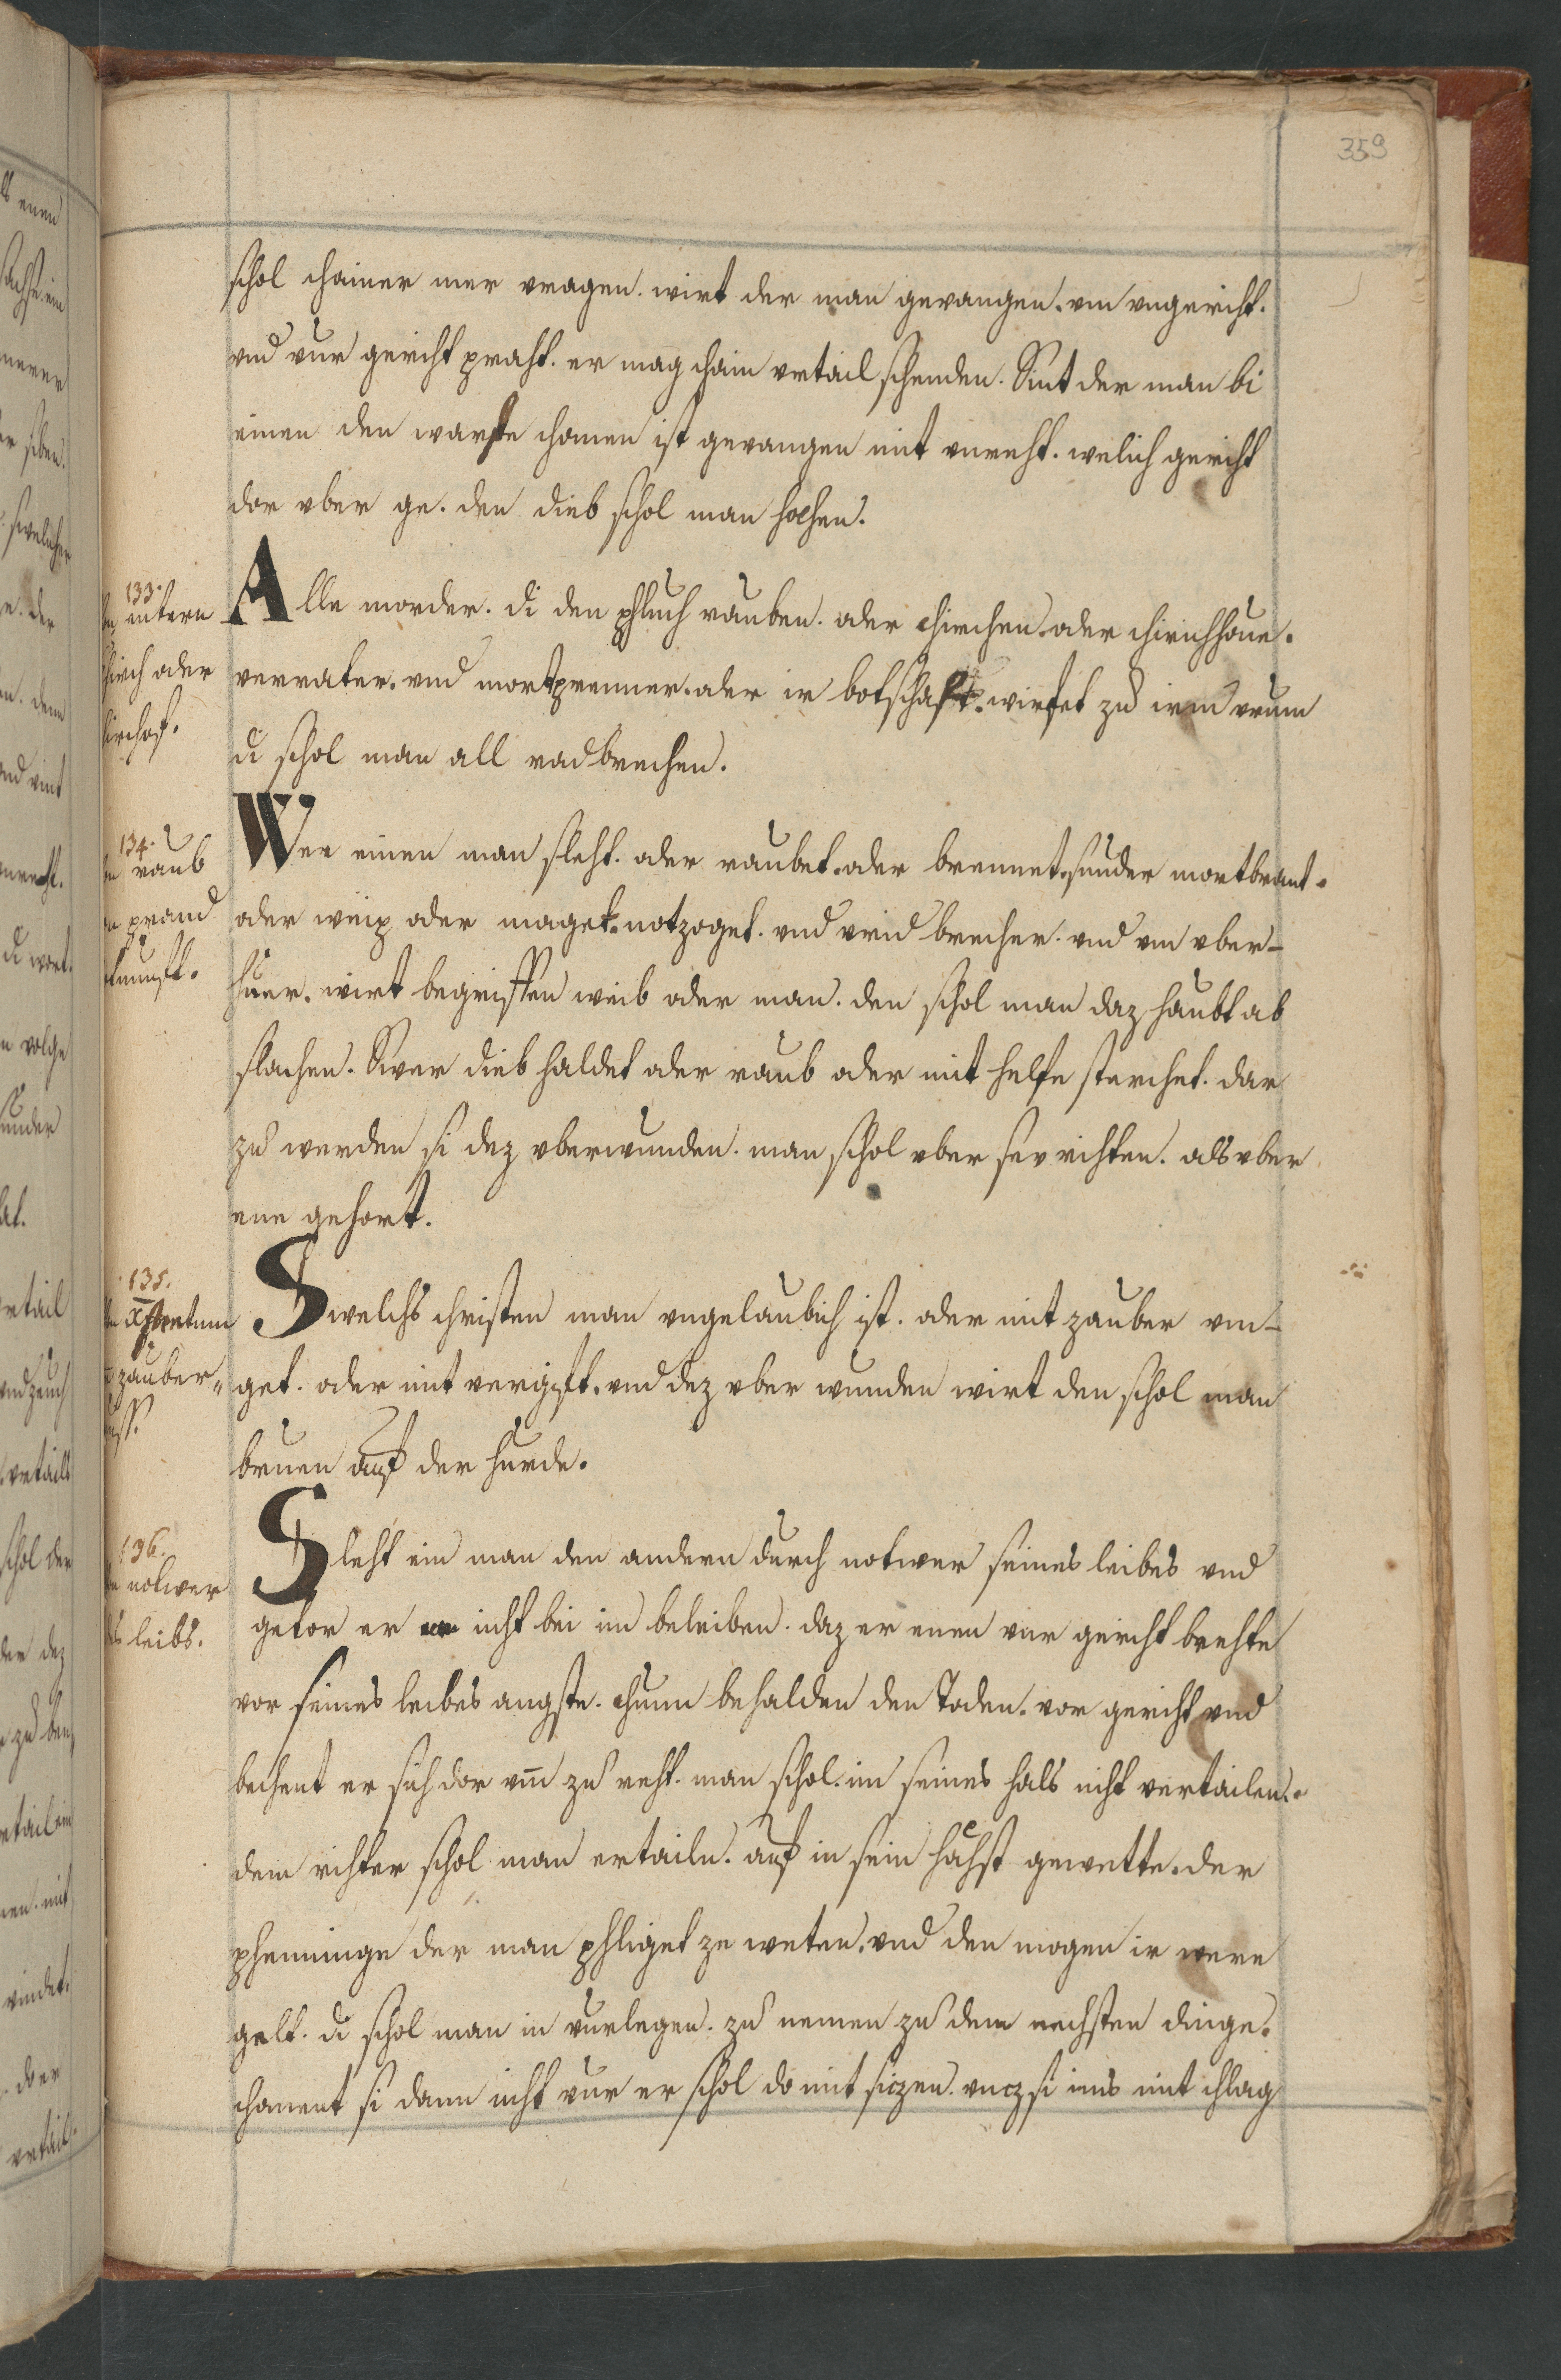 359
schol chainer mer vragen. wirt der man gevangen. vm vngericht.
vnd vur gericht praht. er mag chain vrtail schenden. Sint der man bi
einen den warste chomen ist gevangen mit vnreht. welich gericht
dor vber ge. den dieb schol man hohen.
133.
Alle morder. di den phluch rauben. oder chirchen. oder chirichhoue.
verrater. vnd mortprenner. oder ir botschaft. wirfet zu irm vrum
di schol man all radbrechen.
chirch oder
134.
raub
prand
Wer einen man sleht. oder raubet. oder brennet. sunder mortbrant.
oder weip oder maget. notzoget. vnd vrid brecher. vnd vm vber-
huer. wirt begriffen weib oder man. den schol man daz haubt ab
slachen. Swer dieb haldet oder raub oder mit helfe sterchet. dar
zu werden si dez vberwunden. man schol vber sev richten. als vber
ene gehort.
135.
zauber"
Swelchs christen man vngelaubich ist. oder mit zauber vm-
get. oder mit vergift. vnd dez vber wunden wirt den schol man
bruen auf der hurde.
136.
notwer
leibs.
Sleht ein man den andern durch notwer seines leibes vnd
getor er niht bei im beleiben. daz er enen vur gericht brehte
vor seines leibes angste. chumm behalden den Toden. vor gericht vnd
bechent er sich dor vm zu reht. man schol. im seines hals niht vertailen.
dem richter schol man ertailn. auf in sein höhst gewette. der
phenninge der man phliget ze weten. vnd den mogen ir were
gelt. di schol man in vurlegen. zu nemen zu dem nechsten dinge.
choment si dann niht vur er schol do mit siczen. vncz si ims mit chlag